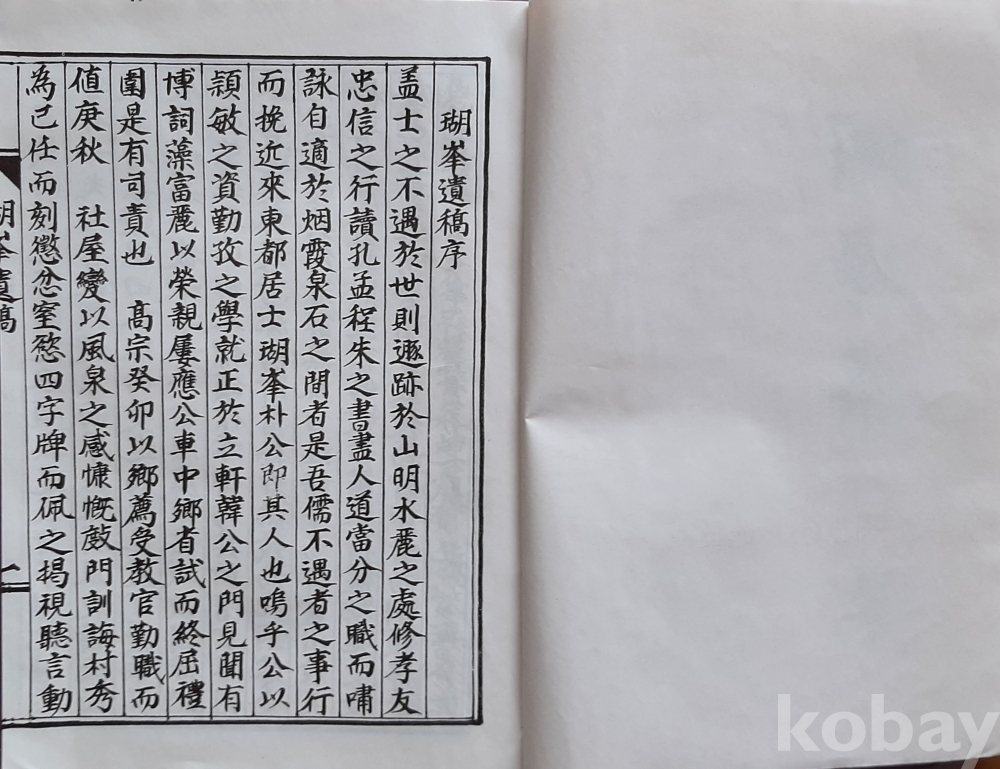 瑚峯遺稿序
盖士之不遇於世則遯跡於山明水麗之處修孝友
忠信之行讀孔孟程朱之書盡人道當分之職而嘯
詠自適於烟霞泉石之間者是吾儒不遇者之事行
而挽近來東都居士瑚峯朴公即其人也嗚乎公以
穎敏之資勤孜之學就正於立軒韓公之門見聞有
博詞藻富麗以榮親屢應公車中鄉省試而終屈禮
圍是有司責也 高宗癸卯以鄉薦受教官勤職而
值庚秋 社屋變以風泉之感慷慨敲門訓誨村秀
為己任而刻懲忿窒慾四字牌而佩之揭視聽言動
瑚峯遺稿
一
kobay